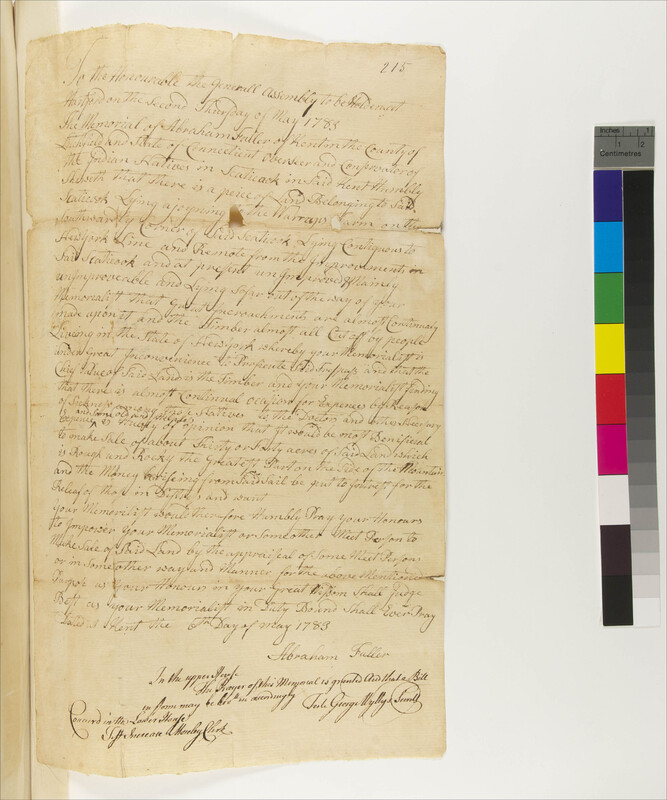 215
To the Honourable the Generall Assembly to be Holden at
Hartford on the Second Thursday of May 1783
The Memorial of Abraham Fuller of Kent in the County of
Litchfield and State of Connecticut Overseer and Conservator of
the Indean Natives in Scaticock in Said Kent Humbly
Sheweth that there is a peice of Land Belonging to Said
Scaticook Lying ajoyning to the Warrups Farm on the
Southwardly Corner of Said Scaticook Lying Contiguous to
Newyork Line and Remote from the Improvements on
Said Scaticook and at present unimproved & Mainly
unimproveable and Lying So far out of the way of your
Memorialist that Great incroachments are almost Continualy
made upon it and the Timber almost all Cut of by people
Liveing in the State of Newyork whereby your Memorialist is
under great Inconvenience to Prosicute Said Trespass and that the
Cheif Value of Said Land is the Timber and your Memorialist finding
that there is almost Continual Ocasion for Expences by Reason
of Sickness among those Natives to the Doctor and other Necessary
and some old and
Expence is of opinion that it would be most Beneficial
to make Sale of about Thirty or Forty acres of Said Land which
is Rough and Rocky the Greatest Part on the Side of the Mountain
and the Money Ariseing from Said Sail be put to for the
Releaf of those in Distress and want
your Memorialist Would therefore Humbly Pray your Honours
to Impower your Memorialist or Some other Meet Person to
Make Sale of Said Land by the appraiseal of Some Meet Persons
or in Some other way and Manner for the above Mentioned
Purpos as your Honours in your Great Wissom Shall Judge
Best as your Memorialist in Duty Bound Shall Ever Pray
Dated at Kent the 6th Day of May 1783
Abraham Fuller
In the upper House
The Prayer of this Memorial is granted And that a Bill
in form may be bro't in accordingly
Test. George Wyllys Secret'y
Concurd in the Lower House
Test Increase Moseley Clerk
Inches
1
2
Centimetres